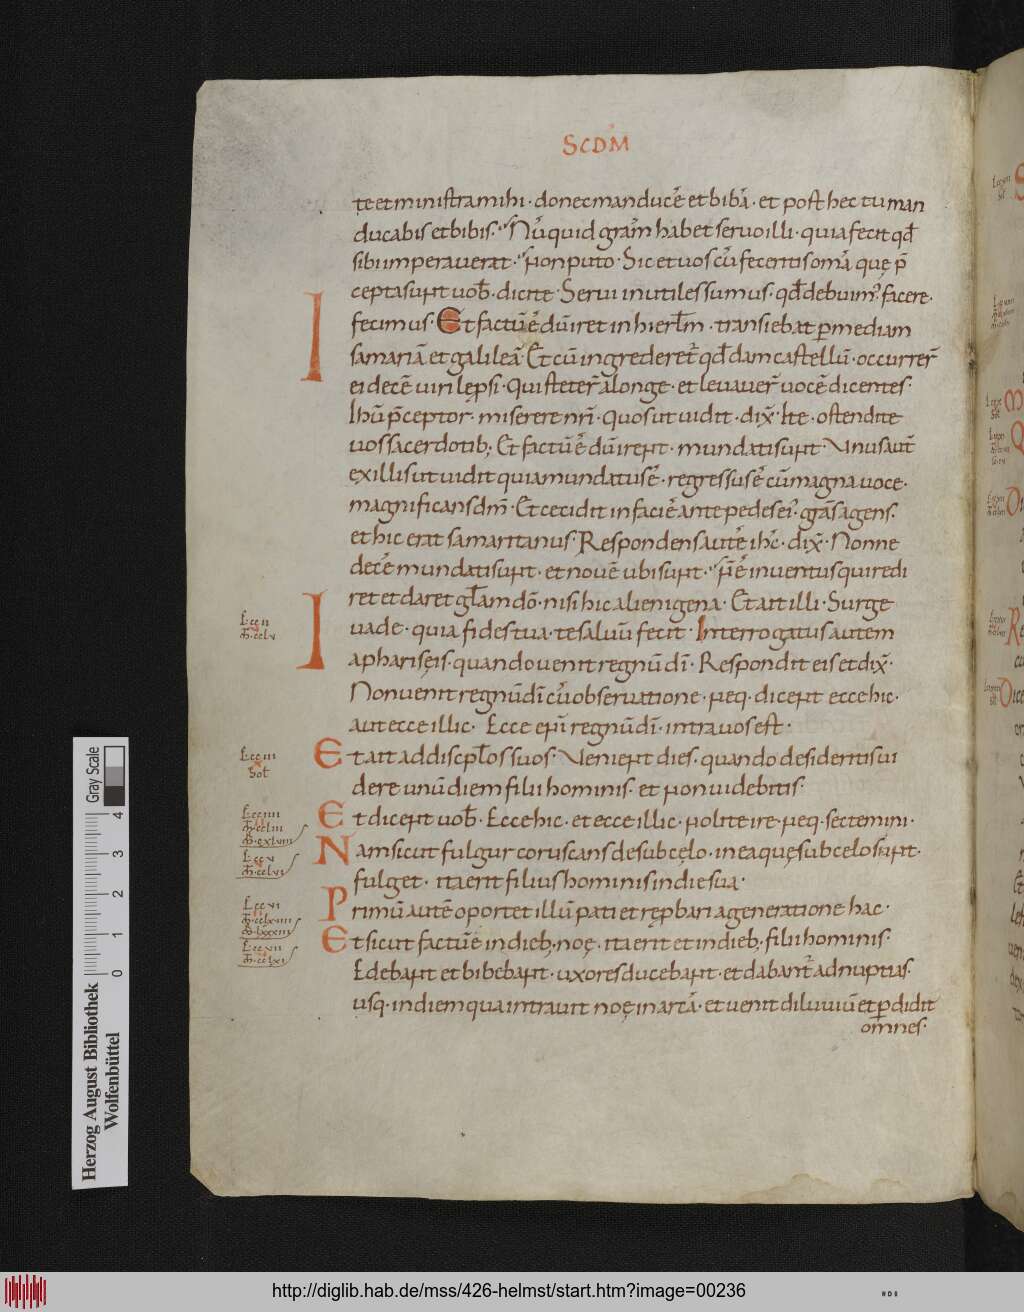 SCDM
te et ministra mihi · donec manducē et bibā · et post hec tu man
ducabis et bibis · Nūquid grām habet seruo illi · quia fecit qđ
sibi imperauerat · Non puto · Sic et uos cū feceritis omā quę p̄
cepta sunt uob̄ · dicite · Serui inutiles sumus · qđ debuim᾽ facere ·
fecimus · Et factū ē dū iret in hierłm · transiebat p mediam
samariā et galileā · Et cū ingrederet᷑ qđdam castellū · occurrer᷑
ei decē uiri lępsi · Qui steter᷑ a longe · et leuauer᷑ uocē dicentes ·
Ihū p̄ceptor · miserere nr̄i · Quos ut uidit · dix̄ · Ite · ostendite
uos sacerdotib; Et factū ē dū irent · mundati sunt · Vnus aut̄
ex illis ut uidit quia mundatus ē · regressus ē cū magna uoce ·
magnificans dm̄ · Et cecidit in faciē ante pedes ei᾽ · grās agens ·
et hic erat samaritanus · Respondens autē ihc̄ · dix̄ · Nonne
decē mundati sunt · et nouē ubi sunt · N̄ ē inuentus qui redi
ret et daret głam dō · nisi hic alienigena · Et ait illi · Surge
uade · quia fides tua · te saluū fecit · Interrogatus autem
a phariseis · quando uenit regnū dī · Respondit eis et dix̄ ·
Non uenit regnū dī cū obseruatione · neq · dicent ecce hic ·
aut ecce illic · Ecce eni̅ regnū dī · intra uos est ·
Et ait ad discipłos suos · Venient dies · quando desideritis ui
dere unū diem filii hominis · et non uidebitis ·
Et dicent uob̄ · Ecce hic · et ecce illic · nolite ire · neq · sectemini ·
Nam sicut fulgur coruscans de sub cęlo · in ea quę sub celo sunt ·
fulget · ita erit filius hominis in die sua ·
Primū autē oportet illū pati et rępbari a generatione hac ·
Et sicut factū ē in dieb; noę · ita erit et in dieb; filii hominis ·
Edebant et bibebant · uxores ducebant · et dabant᷑ ad nuptias ·
usq · in diem qua intrauit noę in arcā · et uenit diluuiū et pdidit
omnes ·
Gray Scale
0 1 2 3 4
Herzog August Bibliothek
Wolfenbüttel
http://diglib.hab.de/mss/426-helmst/start.htm?image=00236